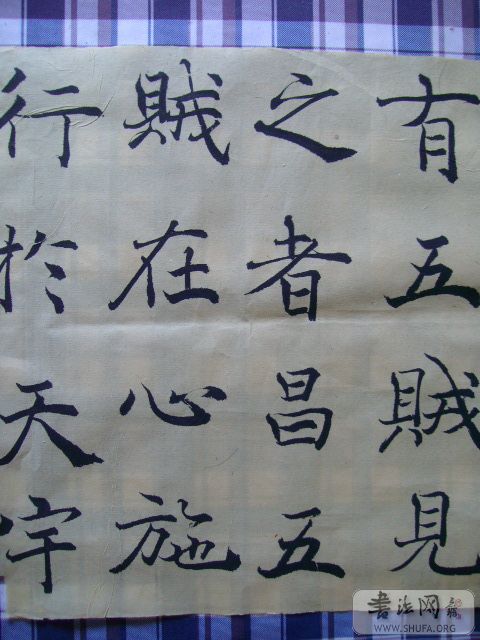 有五賊見
之者昌五
賊在心施
行於天宇
書法网
WWW.SHUFA.ORG